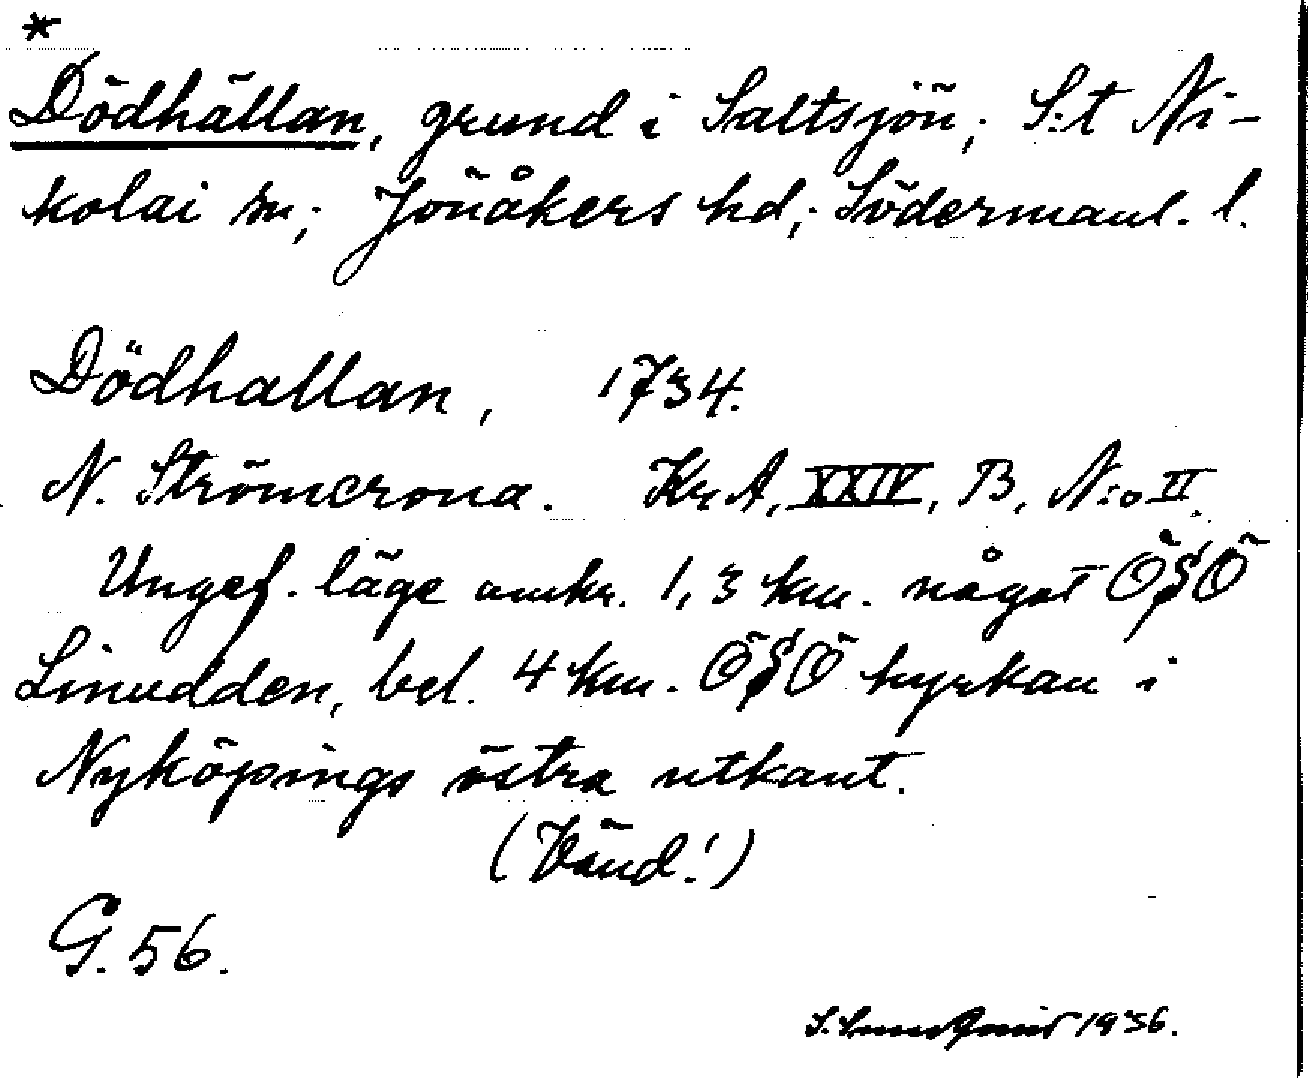 *
Dödhällan, grund i Saltsjön; S:t Ni-
kolai sn; Jönåkers hd; Södermanl. l.
Dödhallan, 1734.
N. Strömcrona. Kr A, XXIV, B, N:o II.
Ungef. läge omkr. 1,3 km. något ÖSÖ
Linudden, bel. 4 km. ÖSÖ kyrkan i
Nyköpings östra utkant.
(Vänd!)
G. 56.
1936.